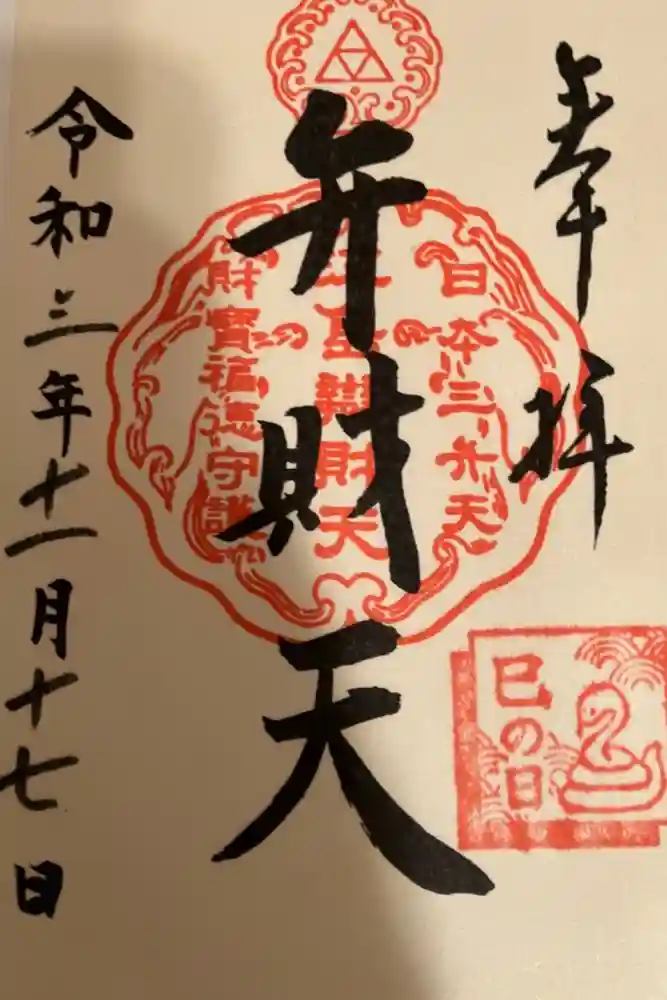 奉拝
日本三弁天
弁財天
財寶福徳守護
令和三年十一月十七日
巳の日